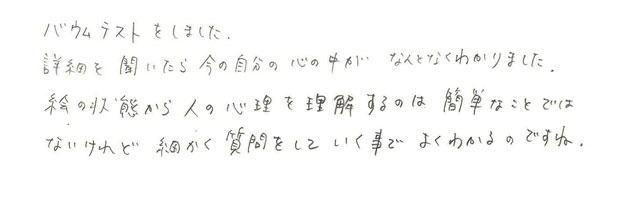 バウムテストをしました.
詳細を聞いたら今の自分の心の中がなんとなくわかりました.
絵の状態から人の心理を理解するのは簡単なことでは
ないけれど細かく質問をしていく事でよくわかるのですね.